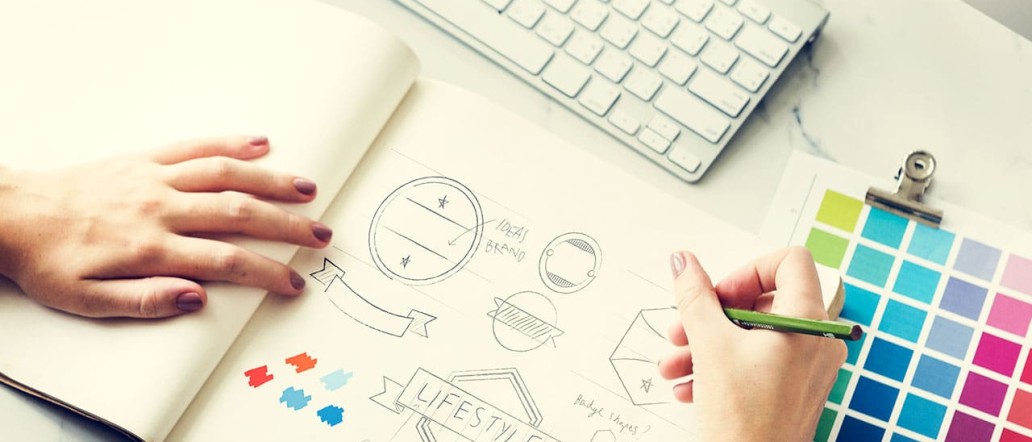 IDEAS
BRAND
LIFESTYLE
Badge shapes?